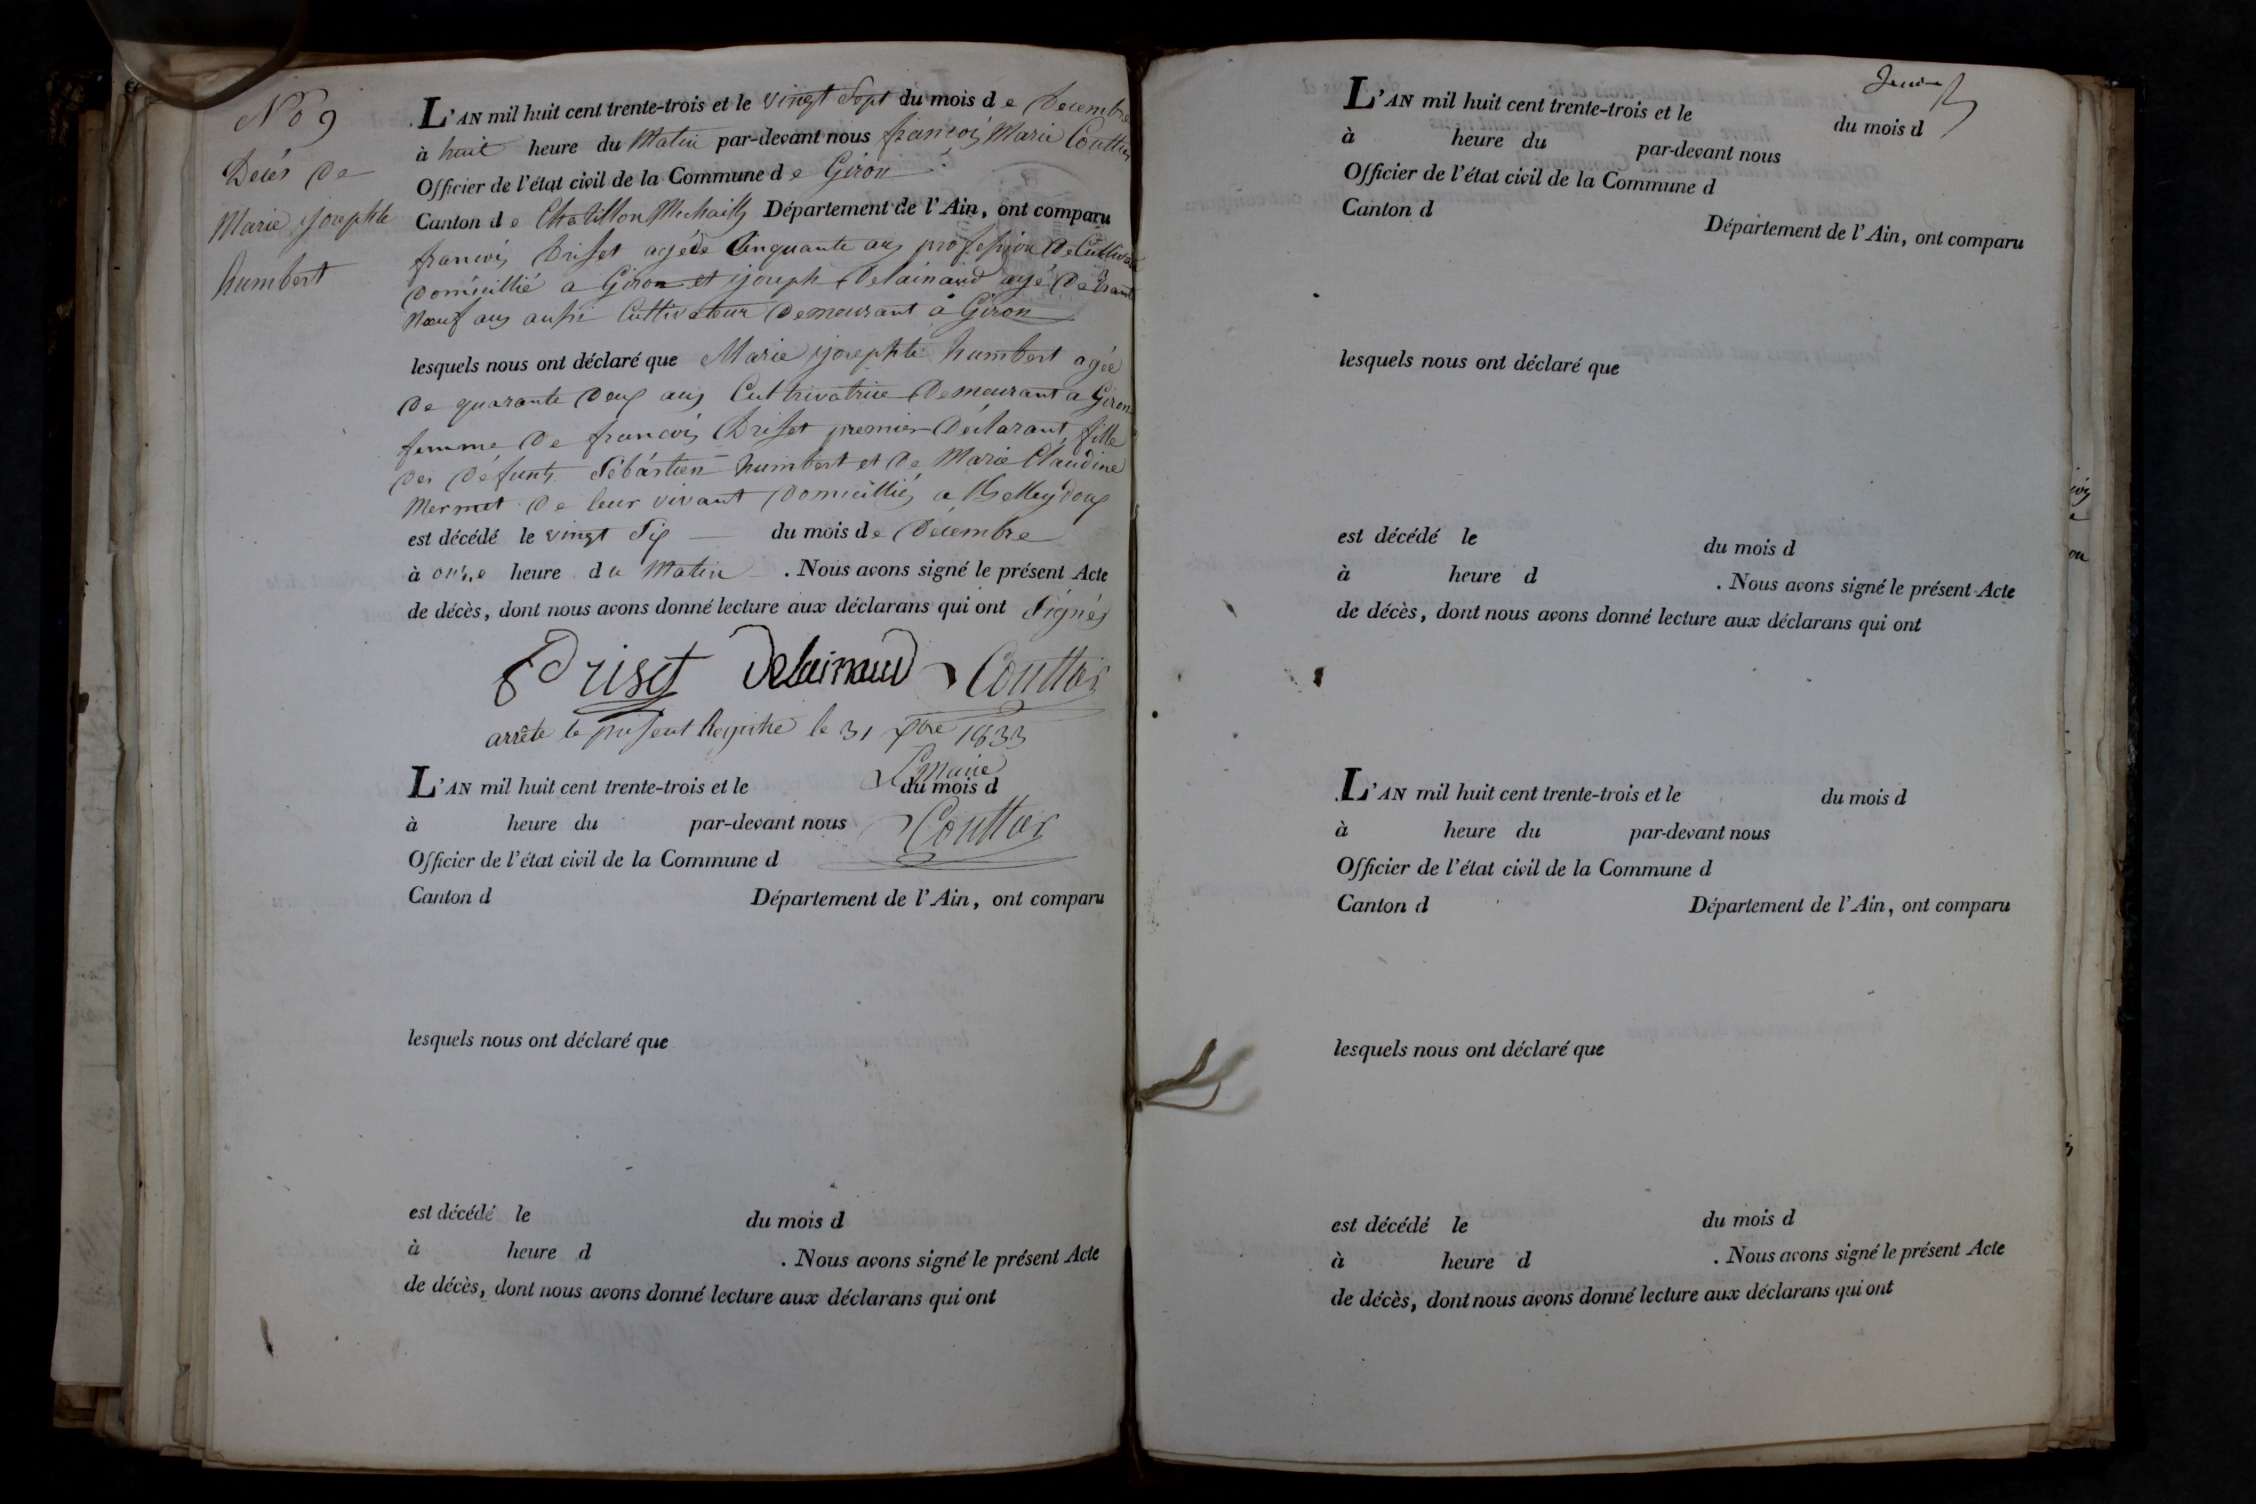 No 9
Décés de
Marie josephte
humbert
L'AN mil huit cent trente-trois et le vingt Sept du mois de Decembre
à huit heure du Matin par-devant nous francois Marie Couttier
Officier de l'état civil de la Commune de Giron
Canton de Chatillon Michaille Département de l'Ain, ont comparu
francois Driset agé de Cinquante ans profession De Cultivat
Domicillié a Giron et joseph Delainaud agé De
Nœuf ans aussi Cultivateur Demeurant a Giron
lesquels nous ont déclaré que Marie josephte humbert agée
De quarante Deux ans Cultrivatrice Demeurant a Giron
femme De francois Driset premier Déclarant, fille
Des Défunts Sébastien humbert et De Marie Claudine
Mermet De leur vivant Domicilliés a Belleydoux
est décédé le vingt Six du mois de Décembre
à onze heure du Matin . Nous avons signé le présent Acte
de décès, dont nous avons donné lecture aux déclarans qui ont Signés
Driset Delainaud Couttier
arrêté le présent Registre le 31 Xbre 1833
Le maire
L'AN mil huit cent trente-trois et le du mois d
à heure du par-devant nous Couttier
Officier de l'état civil de la Commune d
Canton d Département de l'Ain, ont comparu
lesquels nous ont déclaré que
est décédé le du mois d
à heure d . Nous avons signé le présent Acte
de décès, dont nous avons donné lecture aux déclarans qui ont
L'AN mil huit cent trente-trois et le du mois d
à heure du par-devant nous
Officier de l'état civil de la Commune d
Canton d Département de l'Ain, ont comparu
lesquels nous ont déclaré que
est décédé le du mois d
à heure d . Nous avons signé le présent Acte
de décès, dont nous avons donné lecture aux déclarans qui ont
L'AN mil huit cent trente-trois et le du mois d
à heure du par-devant nous
Officier de l'état civil de la Commune d
Canton d Département de l'Ain, ont comparu
lesquels nous ont déclaré que
est décédé le du mois d
à heure d . Nous avons signé le présent Acte
de décès, dont nous avons donné lecture aux déclarans qui ont